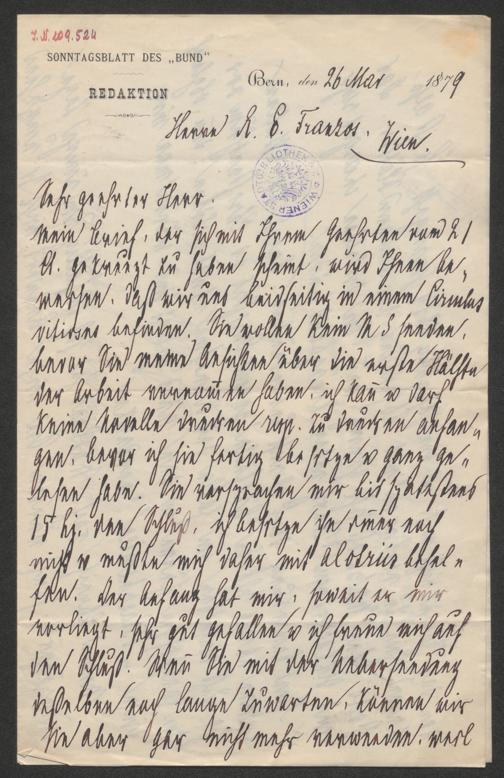 I.N. 209.524
SONNTAGSBLATT DES „BUND"
REDAKTION
Bern, den 26 Mai 1879
Herrn K. E. Franzos, Wien.
Sehr geehrter Herr.
Mein Brief, der sich mit Ihrem Geehrten vom 21
d. gekreuzt zu haben scheint, wird Ihnen be„
wiesen, daß wir uns beidseitig in einem Circulus
vitiosus befinden. Sie wollen kein MS senden,
bevor Sie meine Ansichten über die erste Hälfte
der Arbeit vernom̄en haben, ich kan̄ u darf
keine Novelle drucken resp. zu drucken anfan„
gen, bevor ich sie fertig besitze u ganz ge„
lesen habe. Sie versprachen mir bis spätestens
15 hj. den Schluß, ich besitze ihn im̄er noch
nicht u mußte mich daher mit alotriis behel„
fen. Der Anfang hat mir, soweit er mir
vorliegt, sehr gut gefallen u ich freue mich auf
den Schluß. Wen̄ Sie mit der Uebersendung
desselben noch lange zuwarten, können wir
sie aber gar nicht mehr verwenden, weil